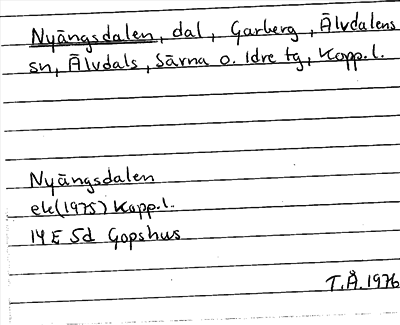 Nyängsdalen, dal, Garberg, Älvdalens
sn, Älvdals, Särna o. Idre tg, Kopp.l.
Nyängsdalen
ek(1975) Kopp.l.
14E 5d Gopshus
T.Å.1976